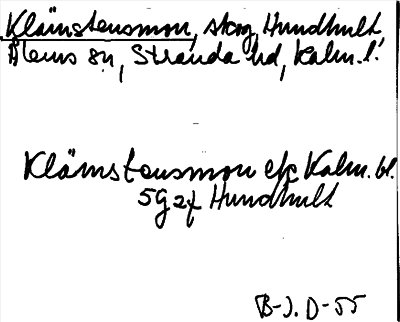 Klämstensmon, skog, Hundhult
Ålems sn, Stranda hd, Kalm. l.
Klämstensmon efc Kalm. bl.
5g zf Hundhult
B-J. D-55